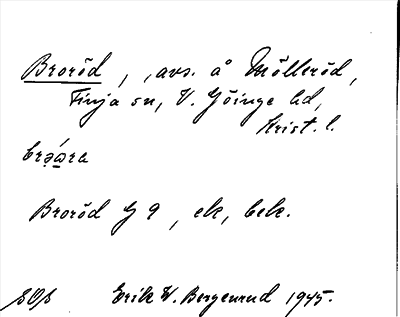 Broröd, , avs. å Mölleröd,
Finja sn, V. Göinge hd,
Krist. l.
Broröd G 9, ek, bek.
Erik W. Bergenrud 1945.